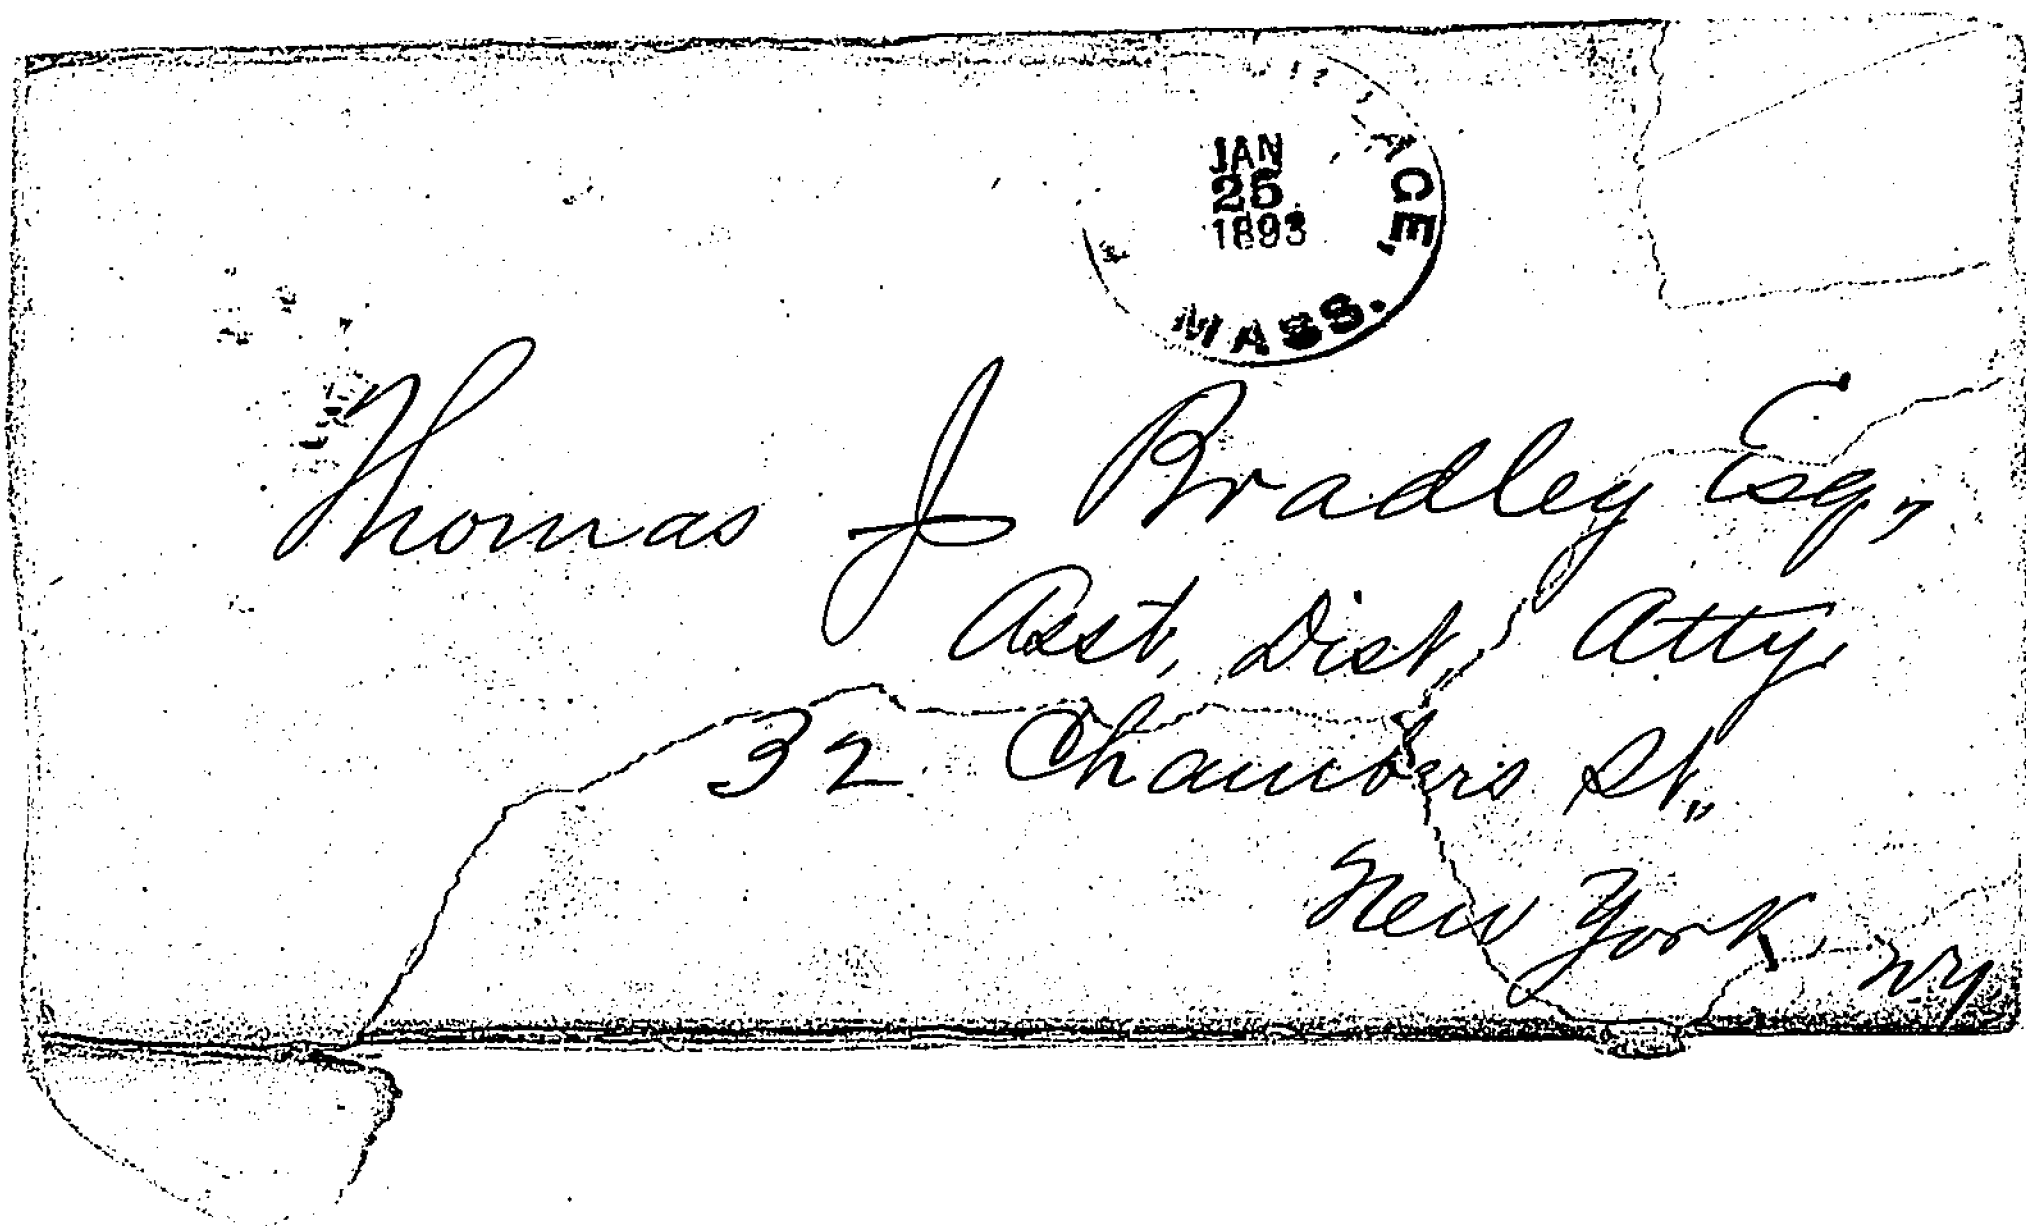 JAN
25
1893
MASS.
Thomas J Bradley Esq,
Asst, Dist, Atty,
32 Chambers St,,
New York, NY